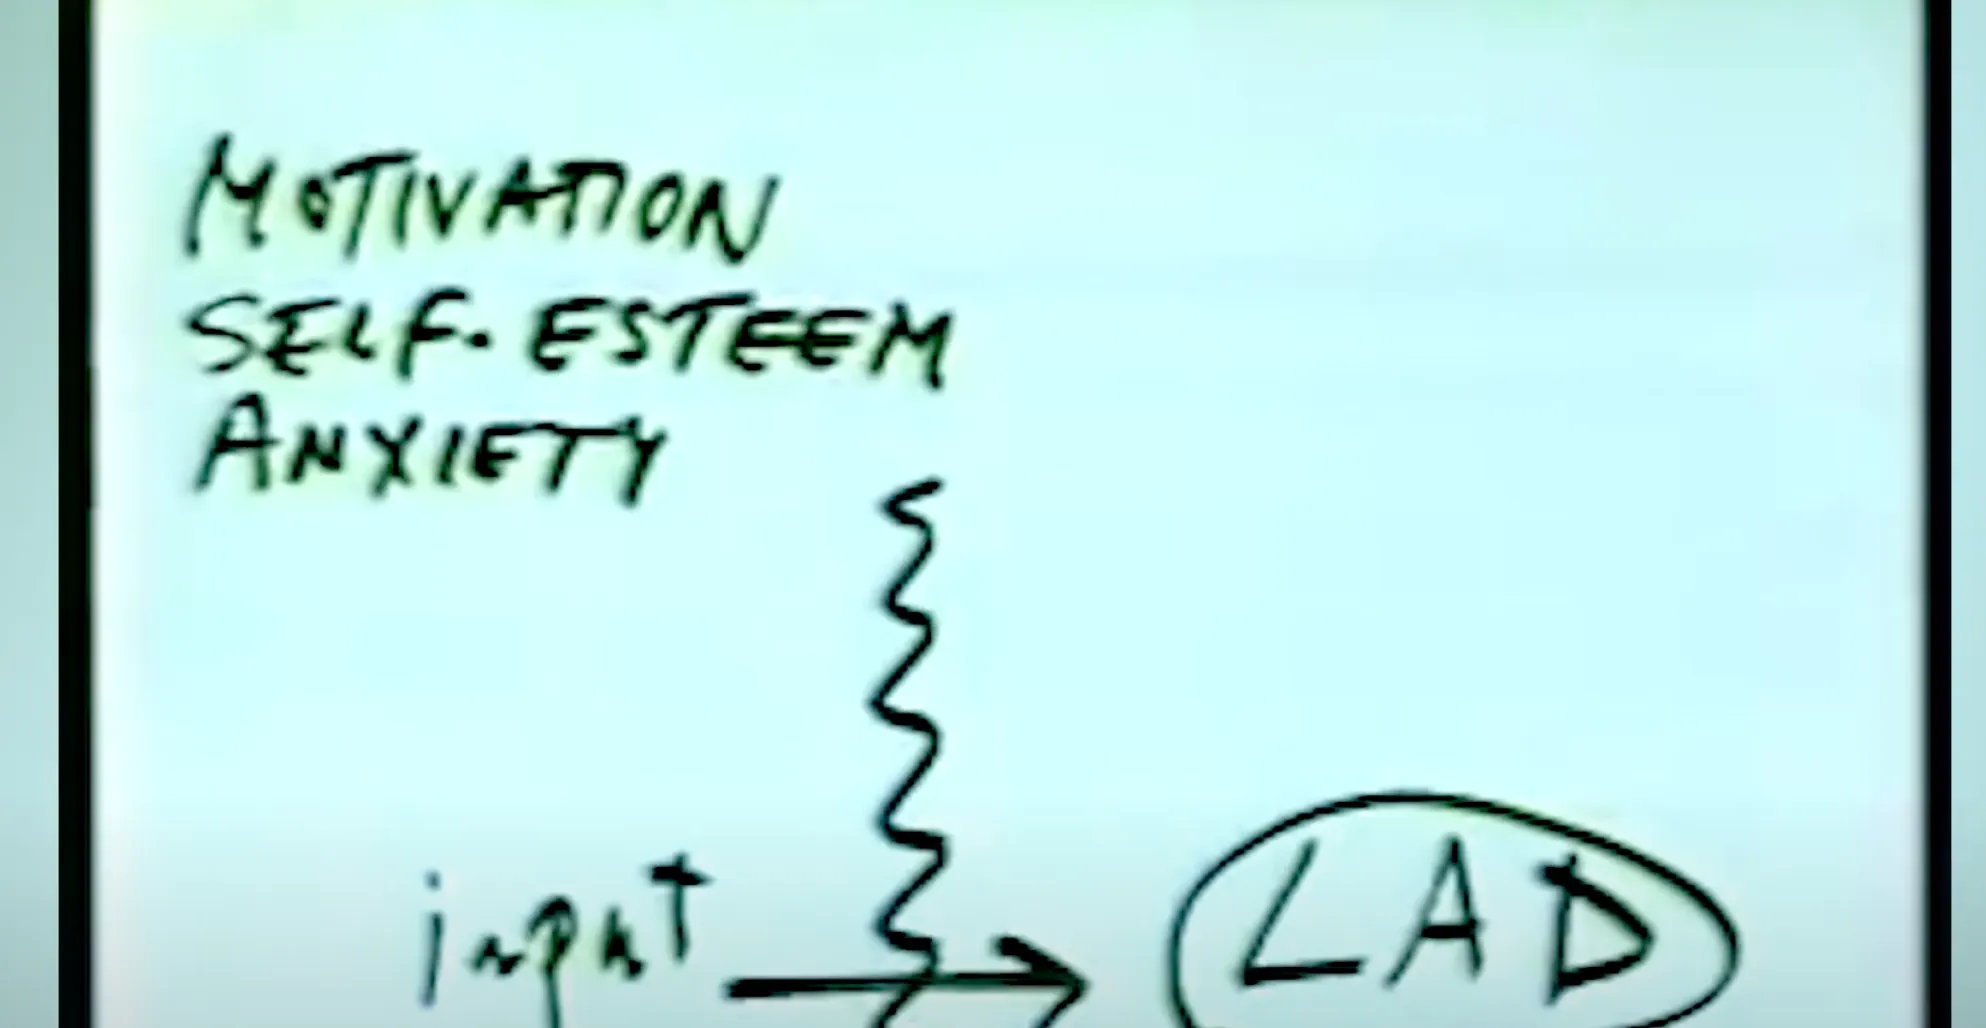 MOTIVATION
SELF-ESTEEM
ANXIETY
input
LAD